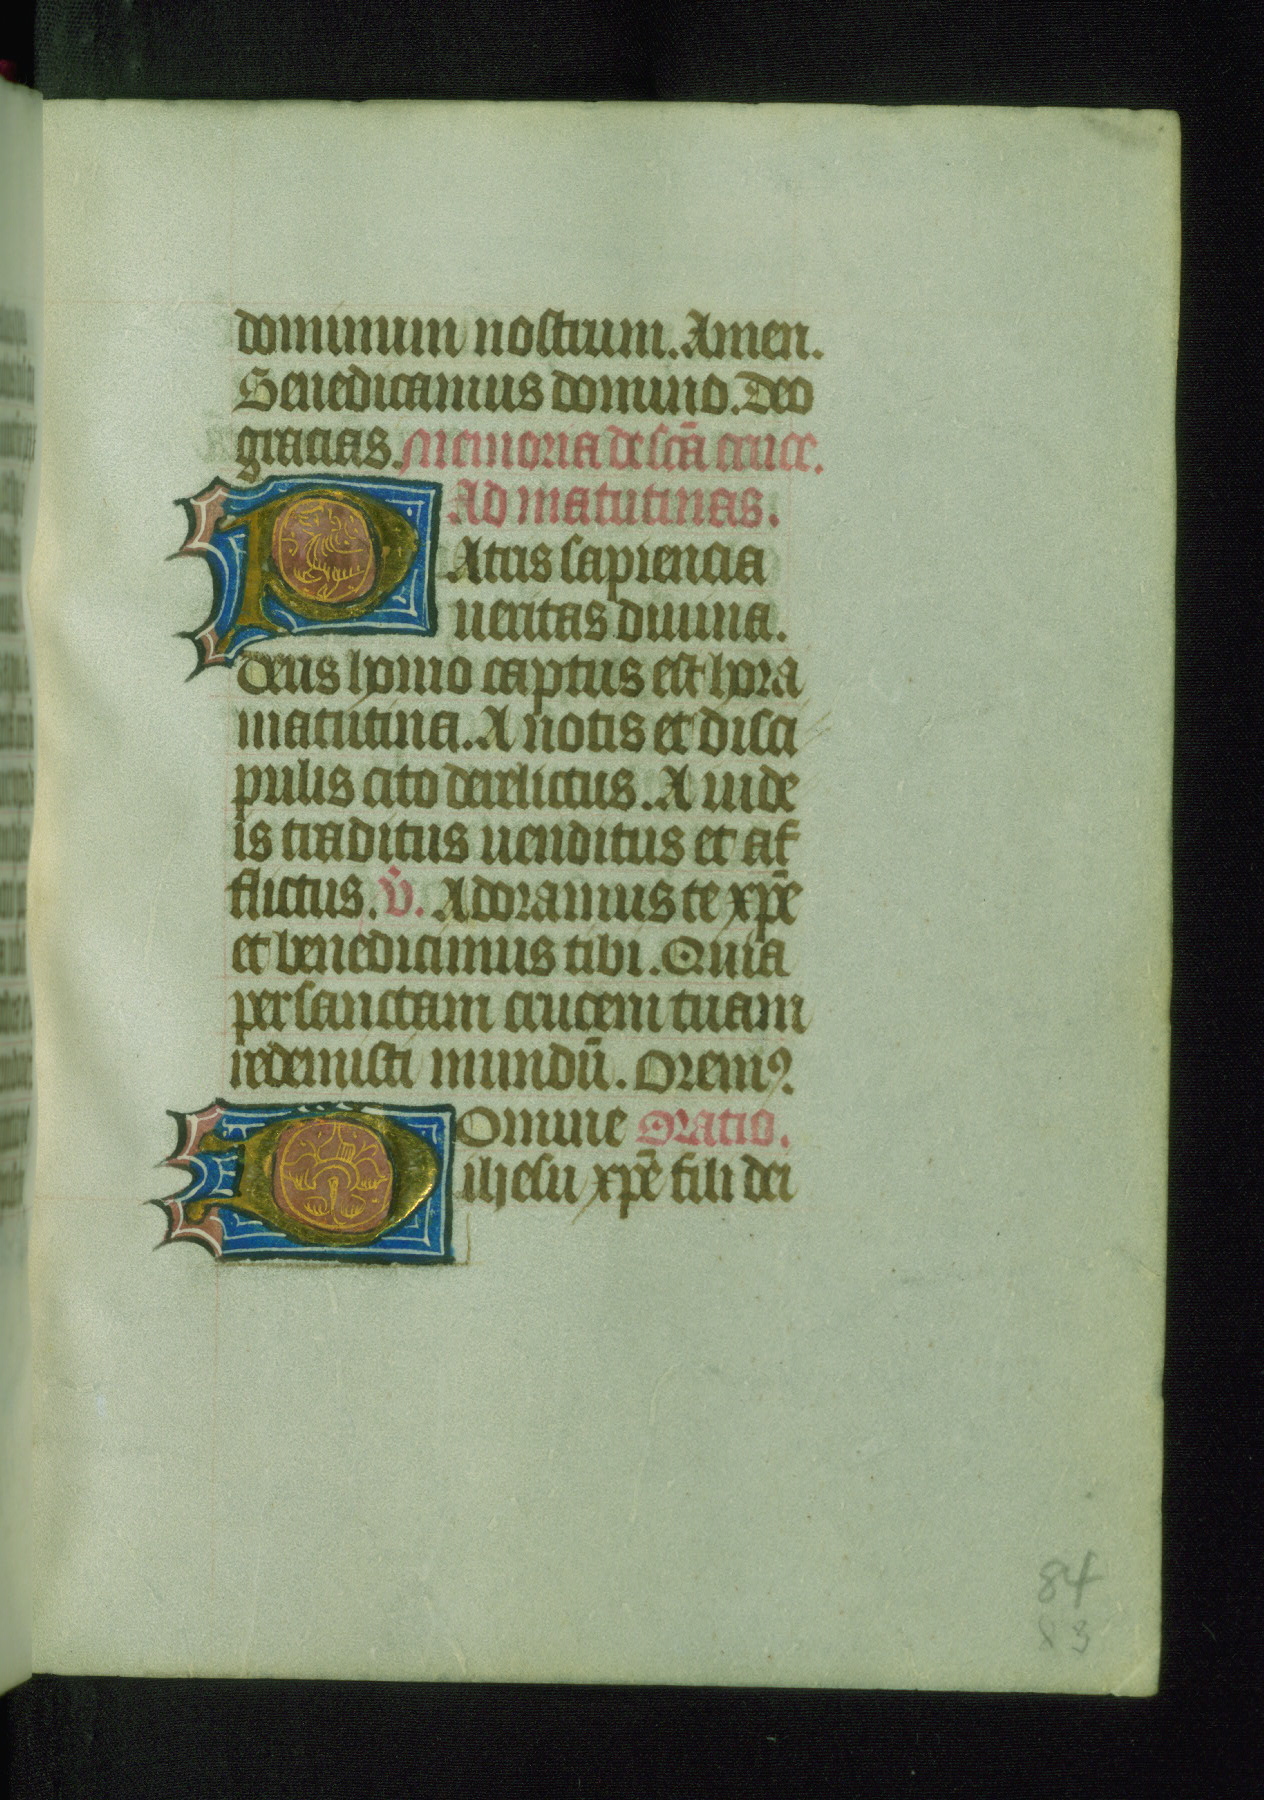 dominum nostrum. Amen.
Benedicamus domino. Deo
gracias. Memoria de scā cruce.
Ad matutinas.
PAtris sapiencia
ueritas diuina.
deus homo captus est hora
matutina. A notis et disci
pulis cito derelictus. A iude
is traditus uenditus et af
flictus. v̇. Adoramus te xp̄e
et benedicimus tibi. Quia
per sanctam crucem tuam
redemisti mundū. Oremꝰ.
Domine Oratio.
ihesu xp̄e fili dei
84
83